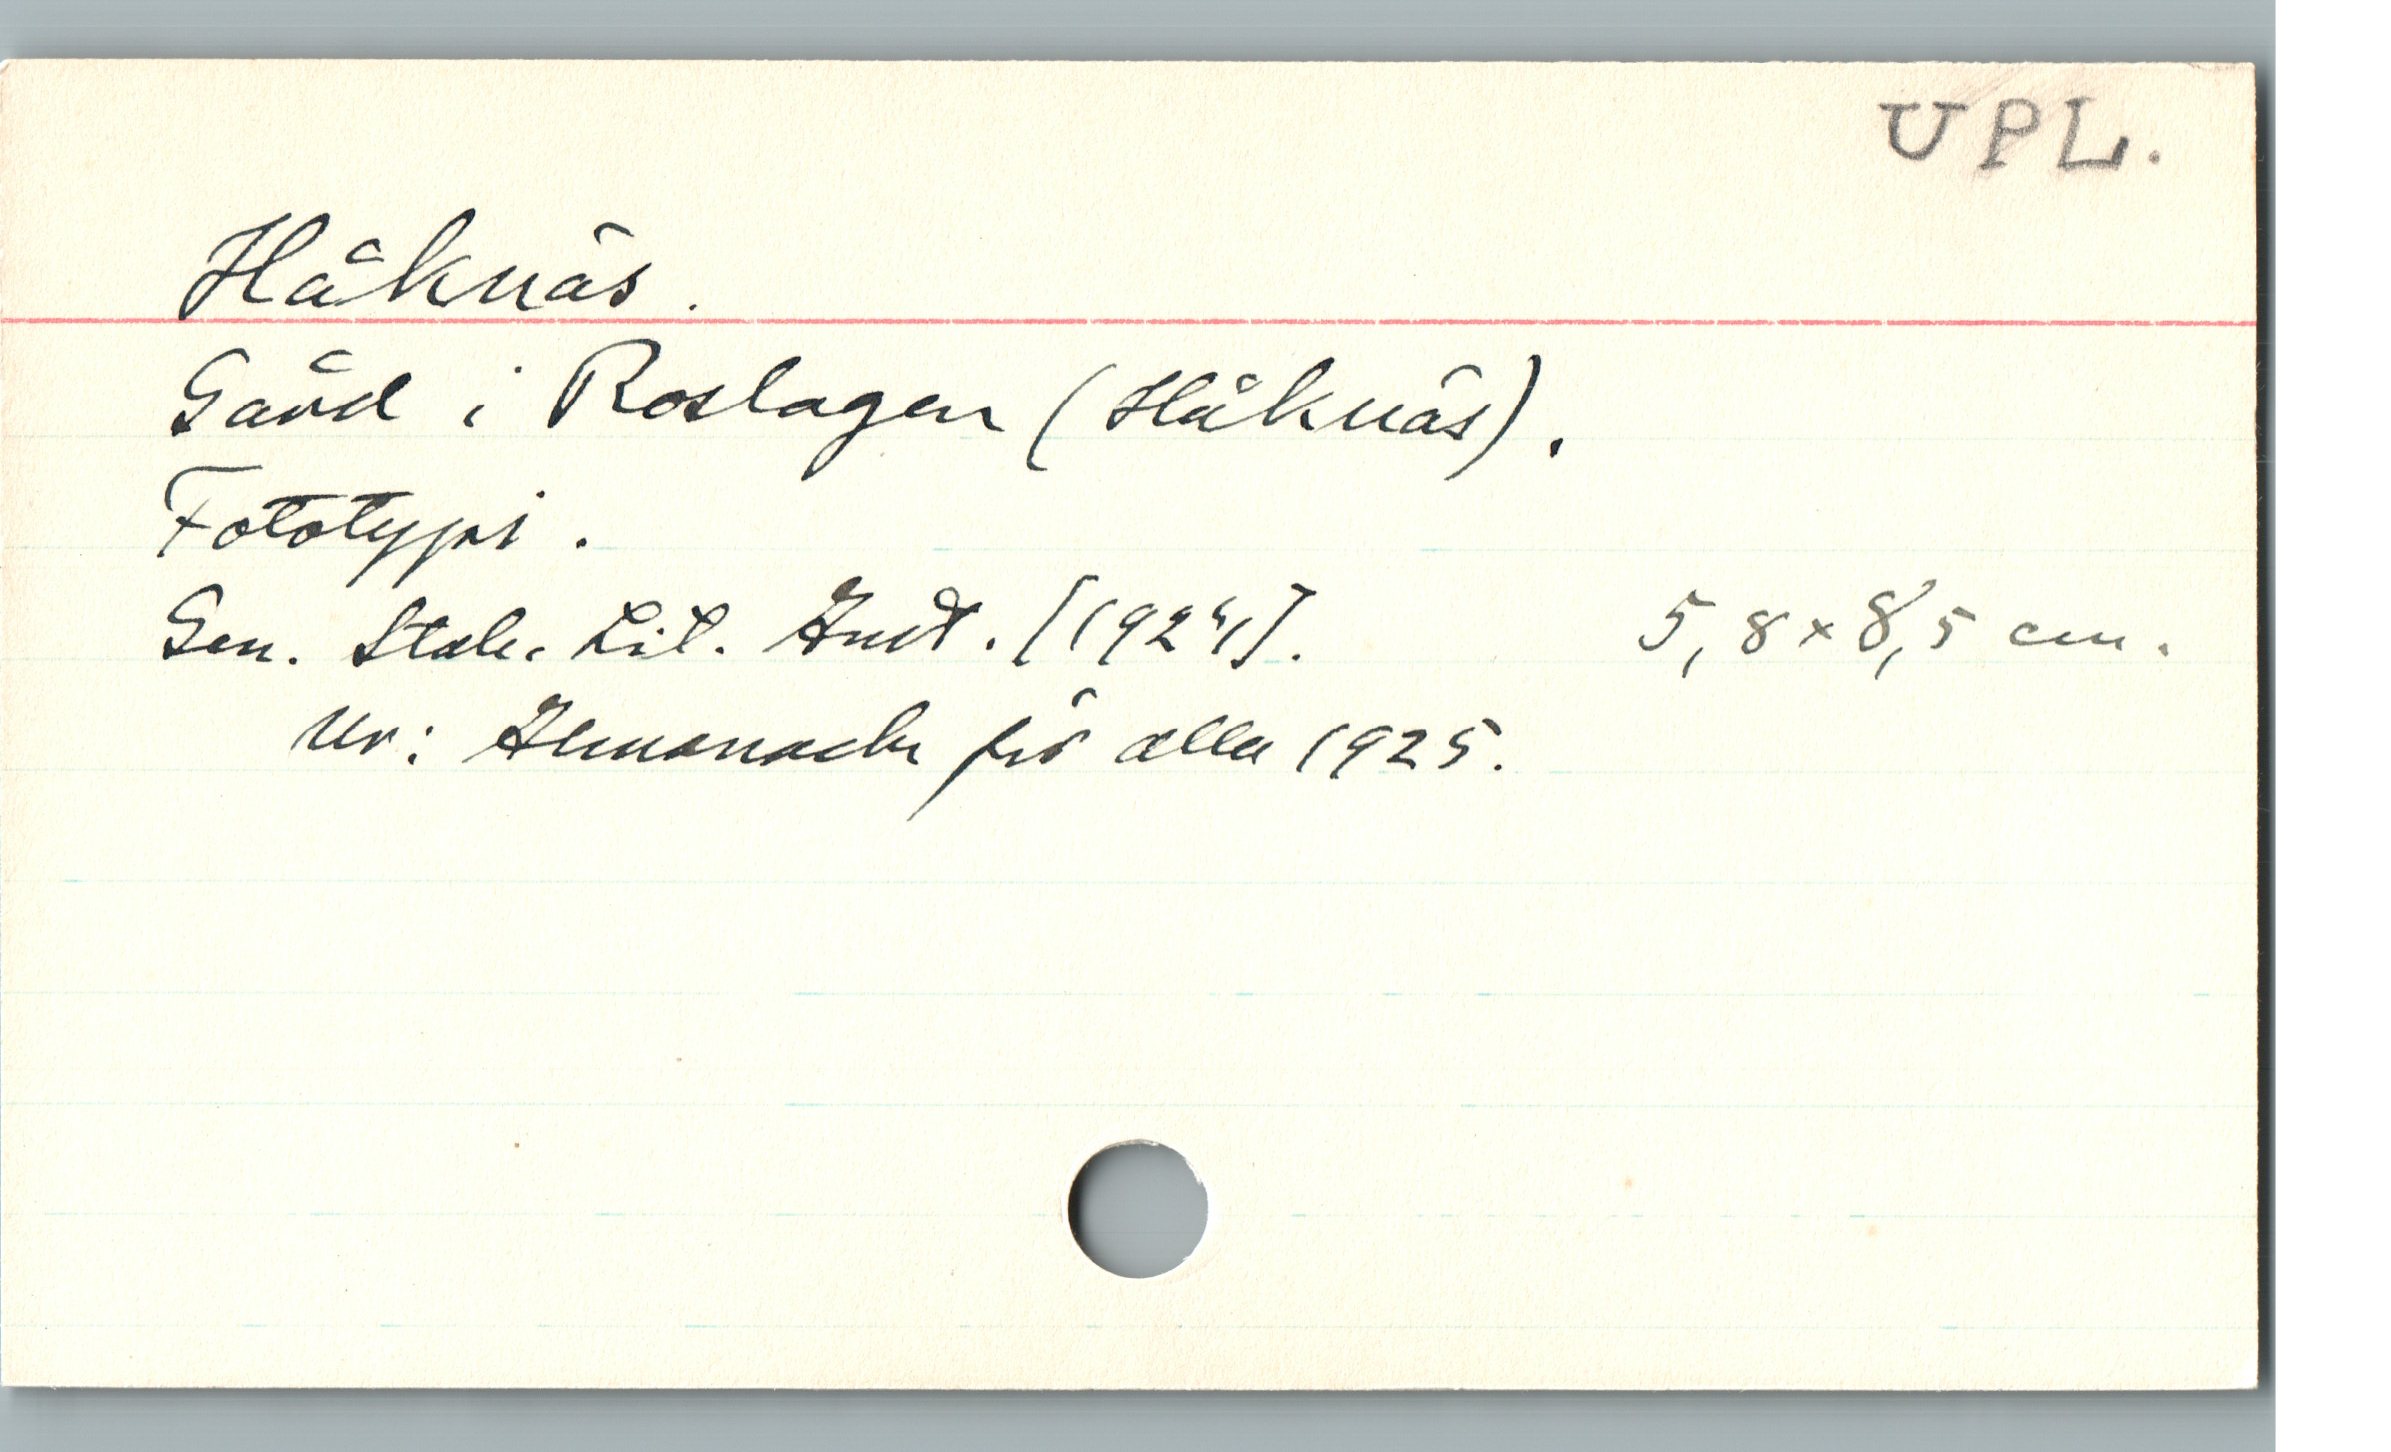 UPL.
Håknäs.
Gård i Roslagen (Håknäs).
Fototypi.
Gen. Stab. Lit. Anst. [1924]. 5,8 x 8,5 cm.
Ur: Almanack för alla 1925.